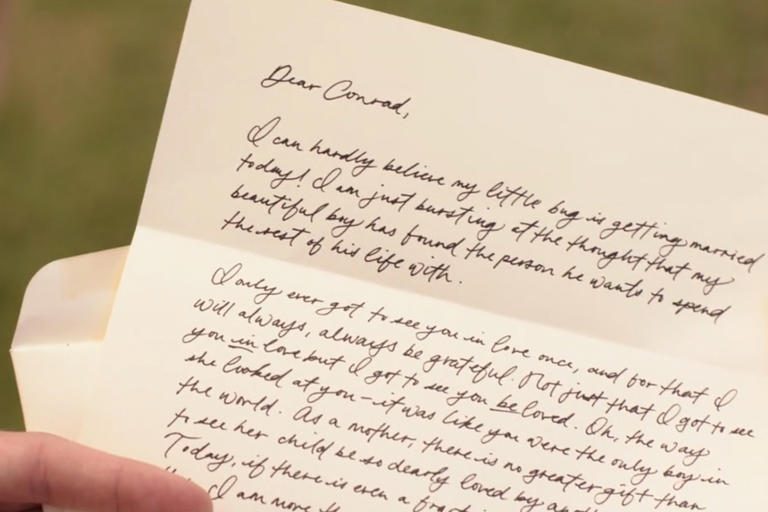 Dear Conrad,
I can hardly believe my little bug is getting married
today! I am just bursting at the thought that my
beautiful boy has found the person he wants to spend
the rest of his life with.
I only ever got to see you in love once, and for that I
will always, always be grateful. Not just that I got to see
you in love but I got to see you be loved. Oh, the way
she looked at you - it was like you were the only boy in
the world. As a mother, there is no greater gift than
to see her child be so dearly loved by
Today, if there is even a
I am more